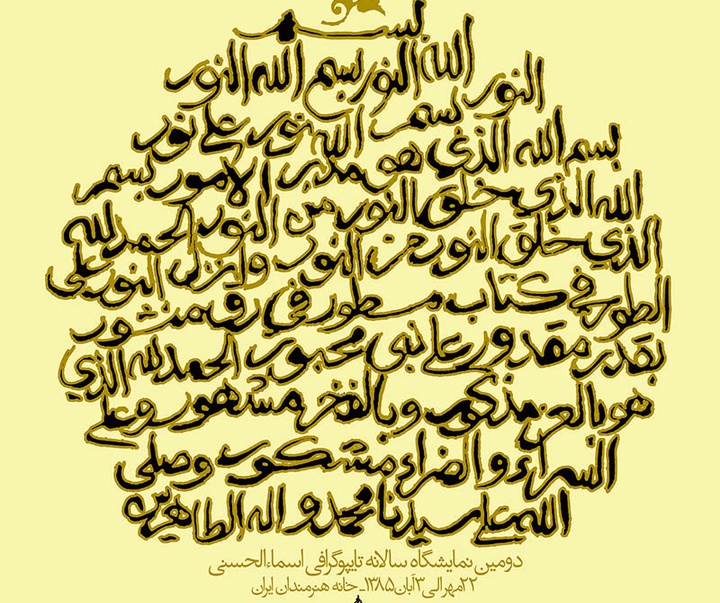 بسم
الله النور بسم الله النور
النور بسم الله نور علی نور
بسم الله الذي هو مدبر الامور بسم
الله الذي خلق النور من النور الحمد لله
الذي خلق النور من النور وانزل النور علی
الطور في كتاب مسطور في رق منشور
بقدر مقدور علی نبي محبور الحمد لله الذي
هو بالعز مذكور و بالفخر مشهور وعلی
السراء و الضراء مشكور وصلی
الله علی سيدنا محمد و اله الطاهرين
دومین نمایشگاه سالانه تایپوگرافی اسماءالحسنی
۲۲مهر الی ۳ آبان ۱۳۸۵ـ خانه هنرمندان ایران